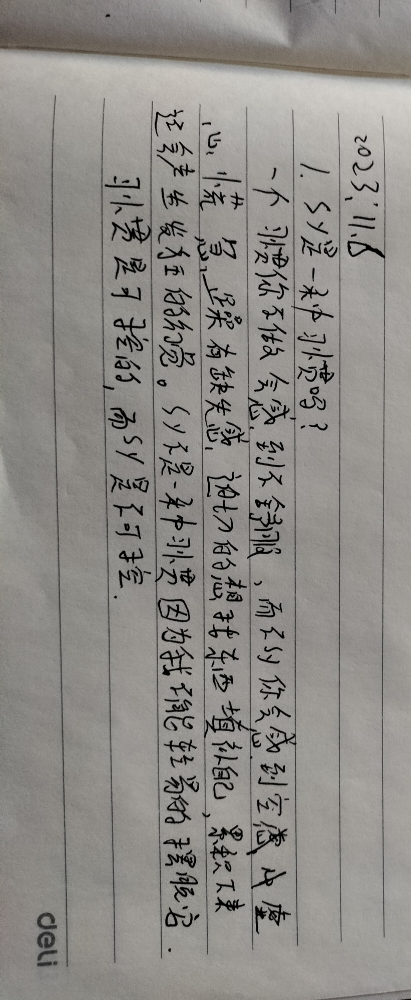 2023.11.8
1. SY是一种习惯吗?
一个习惯你不做会感到不舒服、而不SY你会感到空虚,内虚
心慌 急、焦躁有缺失感,迫切的想找东西填补自己,累积下来
还会产生发狂的幻觉。SY不是一种习惯因为我不能轻易的摆脱它.
习惯是可控的,而SY是不可控.
deli